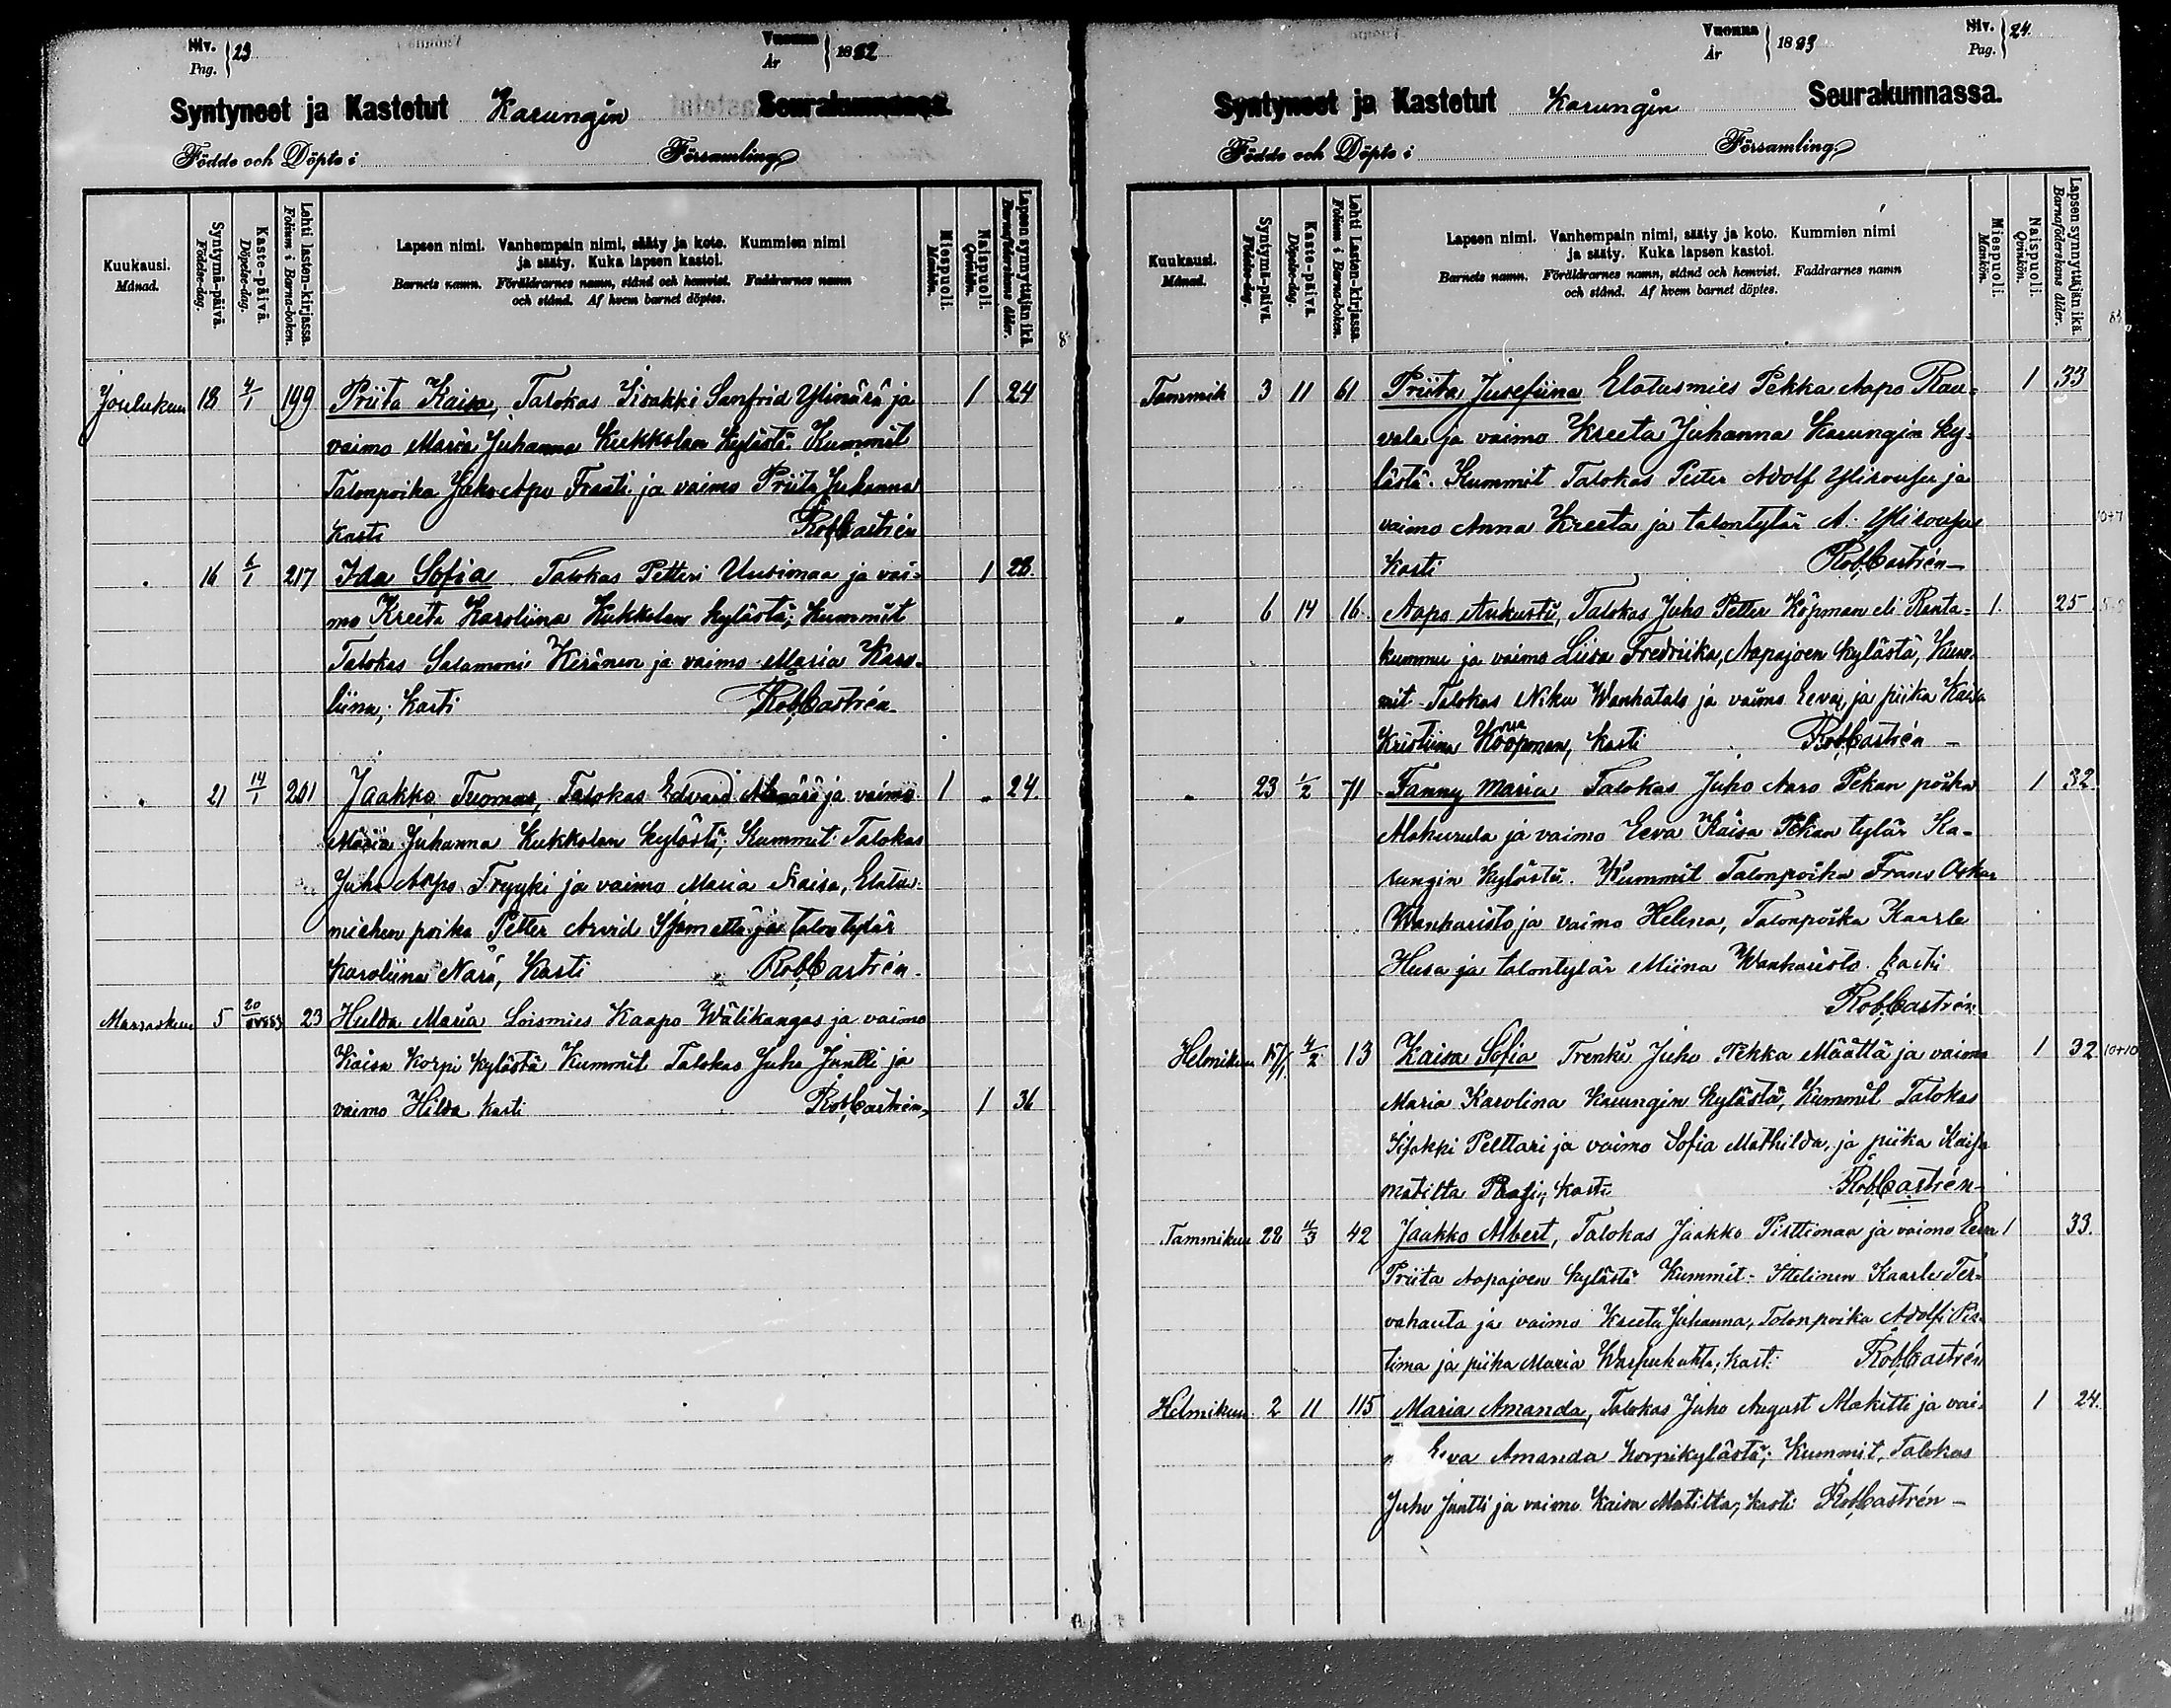 Siv. Pag. } 23 Vuonna År } 1882
Syntyneet ja Kastetut Karungin Seurakunnassa.
Födde och Döpte i Församling
Kuukausi. Månad.
Syntymä-päivä. Födelse-dag.
Kaste-päivä. Döpelse-dag.
Lehti lasten-kirjassa. Folium i Barna-boken.
Lapsen nimi. Vanhempain nimi, sääty ja koto. Kummien nimi
ja sääty. Kuka lapsen kastoi.
Barnets namn. Föräldrarnes namn, stånd och hemvist. Faddrarnes namn
och stånd. Af hvem barnet döptes.
Miespuoli. Mankön.
Naispuoli. Qvinkön.
Lapsen synnyttäjän ikä. Barnaföderskans ålder.
Joulukuu 18 4/1 199 Priita Kaisa, Talokas Iisakki Sanfrid Ylinärä ja 1 24
vaimo Maria Juhanna Kukkolan kylästä. Kummit
Talonpoika Juho Apo Fraati ja vaimo Priita Juhanna
kasti Rob. Castrén
" 16 6/1 217 Ida Sofia Talokas Petteri Uusimaa ja vai- 1 28.
mo Kreeta Karoliina Kukkolan kylästä; Kummit
Talokas Salamoni Keränen ja vaimo Maria Karo-
liina, kasti Rob. Castrén
" 21 14/1 201 Jaakko Tuomas, Talokas Edvard Alanärä ja vaimo 1 " 24.
Maria Juhanna Kukkolan kylästä; Kummit Talokas
Juho Aapo Fryyki ja vaimo Maria Kaisa, Elatus-
miehen poika Petter Arvid ja talon tytär
Karoliina Närä, Kasti Rob. Castrén.
Marraskuu 5 20 23 Hulda Maria Loismies Kaapo Wälikangas ja vaimo
Kaisa Korpi kylästä Kummit Talokas Juho Juntti ja
vaimo Hilda kasti Rob. Castrén, 1 36
Vuonna År } 1883 Siv. Pag. } 24.
Syntyneet ja Kastetut Karungin Seurakunnassa.
Födde och Döpte i Församling
Kuukausi. Månad.
Syntymä-päivä. Födelse-dag.
Kaste-päivä. Döpelse-dag.
Lehti Lasten-kirjassa. Folium i Barna-boken.
Lapsen nimi. Vanhempain nimi, sääty ja koto. Kummien nimi
ja sääty. Kuka lapsen kastoi.
Barnets namn. Föräldrarnes namn, stånd och hemvist. Faddrarnes namn
och stånd. Af hvem barnet döptes.
Miespuoli. Mankön.
Naispuoli. Qvinkön.
Lapsen synnyttäjän ikä. Barnaföderskans ålder.
Tammik 3 11 61 Priita Jusefiina Elatusmies Pekka Aapo Rau- 1 33
vala ja vaimo Kreeta Juhanna Karungin ky-
lästä. Kummit Talokas Peter Adolf Ylirousu ja
vaimo Anna Kreeta ja talontytär A. Ylirousu
Kasti Rob. Castrén
" 6 14 16. Aapo Aukusti, Talokas Juho Petter Köpman eli Ranta- 1. 25
kummu ja vaimo Liisa Fredriika, Aapajoen kylästä, Kum-
mit Talokas Niku Wanhatalo ja vaimo Eeva, ja piika Kaisa
Kristiina Koopman, kasti Rob. Castrén
" 23 1/2 71 Fanny Maria Talokas Juho Aaro Pekan poika 1 32
Alahurula ja vaimo Eeva Kaisa Pekan tytär Ka-
rungin kylästä. Kummit Talonpoika Frans Oskar
Wanharisto ja vaimo Helena, Talonpoika Kaarle
Husa ja talontytär Miina Wanharisto. kasti
Rob. Castrén.
Helmikuu 17/1. 4/2 13 Kaisa Sofia Trenki Juho Pekka Määttä ja vaimo 1 32 10+10
Maria Karolina Karungin kylästä, Kummit Talokas
Iisakki Pelttari ja vaimo Sofia Mathilda, ja piika Kaisa
Matilta kasti Rob. Castrén
Tammikuu 22 4/3 42 Jaakko Albert, Talokas Jaakko Pirttimaa ja vaimo Eeva 1 33.
Priita Aapajoen kylästä Kummit. Itellinen Kaarle Ter-
vahauta ja vaimo Kreeta Juhanna, Talonpoika Adolf Pirt-
tima ja piika Maria kast. Rob. Castrén
Helmikuu 2 11 115 Maria Amanda, Talokas Juho August Alakitti ja vai- 1 24.
Eeva Amanda Korpikylästä; Kummit, Talokas
Juho Juntti ja vaimo Kaisa Matilta, kasti Rob. Castrén